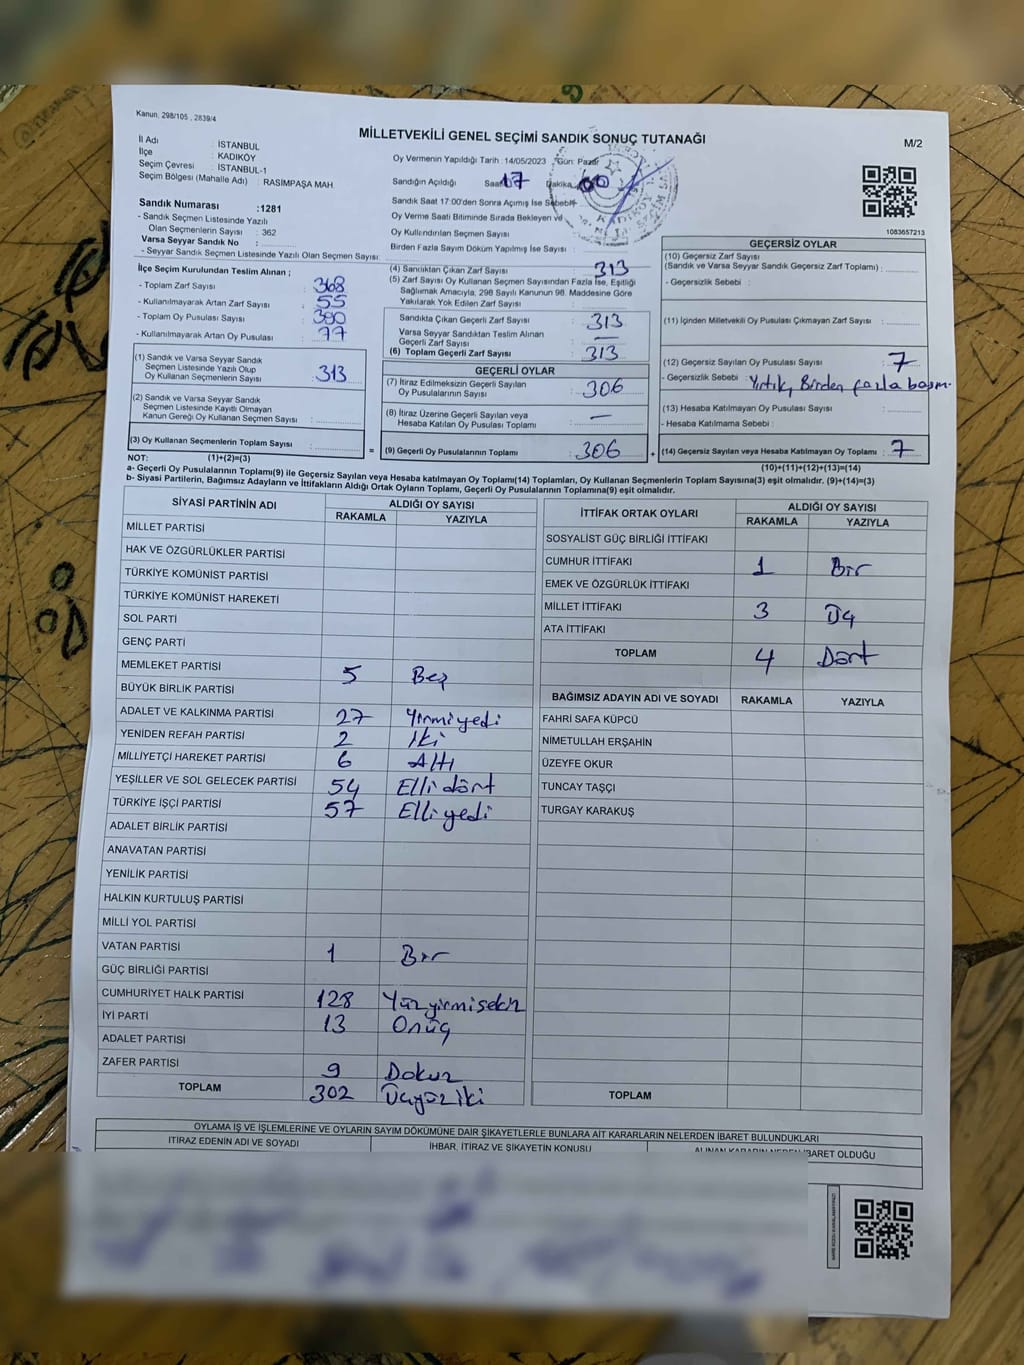 Kanun, 298/105 , 2839/4
MİLLETVEKİLİ GENEL SEÇİMİ SANDIK SONUÇ TUTANAĞI
M/2
İl Adı : İSTANBUL
İlçe : KADIKÖY
Seçim Çevresi : İSTANBUL-1
Seçim Bölgesi (Mahalle Adı) : RASİMPAŞA MAH.
Oy Vermenin Yapıldığı Tarih : 14/05/2023 Gün: Pazar
Sandığın Açıldığı Saat 17 Dakika 00
Sandık Saat 17:00'den Sonra Açılmış İse Sebebi
Oy Verme Saati Bitiminde Sırada Bekleyen ve
Oy Kullandırılan Seçmen Sayısı
Birden Fazla Sayım Döküm Yapılmış İse Sayısı :
Sandık Numarası :1281
- Sandık Seçmen Listesinde Yazılı
Olan Seçmenlerin Sayısı : 362
Varsa Seyyar Sandık No :
- Seyyar Sandık Seçmen Listesinde Yazılı Olan Seçmen Sayısı:
1083657213
İlçe Seçim Kurulundan Teslim Alınan ;
- Toplam Zarf Sayısı : 368
- Kullanılmayarak Artan Zarf Sayısı : 55
- Toplam Oy Pusulası Sayısı : 390
- Kullanılmayarak Artan Oy Pusulası : 77
(1) Sandık ve Varsa Seyyar Sandık
Seçmen Listesinde Yazılı Olup
Oy Kullanan Seçmenlerin Sayısı : 313
(2) Sandık ve Varsa Seyyar Sandık
Seçmen Listesinde Kayıtlı Olmayan
Kanun Gereği Oy Kullanan Seçmen Sayısı :
(3) Oy Kullanan Seçmenlerin Toplam Sayısı :
(4) Sandıktan Çıkan Zarf Sayısı : 313
(5) Zarf Sayısı Oy Kullanan Seçmen Sayısından Fazla İse, Eşitliği
Sağlamak Amacıyla, 298 Sayılı Kanunun 98. Maddesine Göre
Yakılarak Yok Edilen Zarf Sayısı :
Sandıkta Çıkan Geçerli Zarf Sayısı : 313
Varsa Seyyar Sandıktan Teslim Alınan
Geçerli Zarf Sayısı : —
(6) Toplam Geçerli Zarf Sayısı : 313
GEÇERLİ OYLAR
(7) İtiraz Edilmeksizin Geçerli Sayılan
Oy Pusulalarının Sayısı : 306
(8) İtiraz Üzerine Geçerli Sayılan veya
Hesaba Katılan Oy Pusulası Toplamı : —
= (9) Geçerli Oy Pusulalarının Toplamı : 306
GEÇERSİZ OYLAR
(10) Geçersiz Zarf Sayısı
(Sandık ve Varsa Seyyar Sandık Geçersiz Zarf Toplamı) :
- Geçersizlik Sebebi :
(11) İçinden Milletvekili Oy Pusulası Çıkmayan Zarf Sayısı :
(12) Geçersiz Sayılan Oy Pusulası Sayısı : 7
- Geçersizlik Sebebi : Yırtık, Birden fazla basım.
(13) Hesaba Katılmayan Oy Pusulası Sayısı :
- Hesaba Katılmama Sebebi :
+ (14) Geçersiz Sayılan veya Hesaba Katılmayan Oy Toplamı : 7
NOT: (1)+(2)=(3)
(10)+(11)+(12)+(13)=(14)
a- Geçerli Oy Pusulalarının Toplamı(9) ile Geçersiz Sayılan veya Hesaba katılmayan Oy Toplamı(14) Toplamları, Oy Kullanan Seçmenlerin Toplam Sayısına(3) eşit olmalıdır. (9)+(14)=(3)
b- Siyasi Partilerin, Bağımsız Adayların ve İttifakların Aldığı Ortak Oyların Toplamı, Geçerli Oy Pusulalarının Toplamına(9) eşit olmalıdır.
SİYASİ PARTİNİN ADI ALDIĞI OY SAYISI
RAKAMLA YAZIYLA
MİLLET PARTİSİ
HAK VE ÖZGÜRLÜKLER PARTİSİ
TÜRKİYE KOMÜNİST PARTİSİ
TÜRKİYE KOMÜNİST HAREKETİ
SOL PARTİ
GENÇ PARTİ
MEMLEKET PARTİSİ 5 Beş
BÜYÜK BİRLİK PARTİSİ
ADALET VE KALKINMA PARTİSİ 27 Yirmiyedi
YENİDEN REFAH PARTİSİ 2 İki
MİLLİYETÇİ HAREKET PARTİSİ 6 Altı
YEŞİLLER VE SOL GELECEK PARTİSİ 54 Ellidört
TÜRKİYE İŞÇİ PARTİSİ 57 Elliyedi
ADALET BİRLİK PARTİSİ
ANAVATAN PARTİSİ
YENİLİK PARTİSİ
HALKIN KURTULUŞ PARTİSİ
MİLLİ YOL PARTİSİ
VATAN PARTİSİ 1 Bir
GÜÇ BİRLİĞİ PARTİSİ
CUMHURİYET HALK PARTİSİ 128 Yüzyirmisekiz
İYİ PARTİ 13 Onüç
ADALET PARTİSİ
ZAFER PARTİSİ 9 Dokuz
TOPLAM 302 Üçyüziki
İTTİFAK ORTAK OYLARI ALDIĞI OY SAYISI
RAKAMLA YAZIYLA
SOSYALİST GÜÇ BİRLİĞİ İTTİFAKI
CUMHUR İTTİFAKI 1 Bir
EMEK VE ÖZGÜRLÜK İTTİFAKI
MİLLET İTTİFAKI 3 Üç
ATA İTTİFAKI
TOPLAM 4 Dört
BAĞIMSIZ ADAYIN ADI VE SOYADI RAKAMLA YAZIYLA
FAHRİ SAFA KÜPCÜ
NİMETULLAH ERŞAHİN
ÜZEYFE OKUR
TUNCAY TAŞÇI
TURGAY KARAKUŞ
TOPLAM
OYLAMA İŞ VE İŞLEMLERİNE VE OYLARIN SAYIM DÖKÜMÜNE DAİR ŞİKAYETLERLE BUNLARA AİT KARARLARIN NELERDEN İBARET BULUNDUKLARI
İTİRAZ EDENİN ADI VE SOYADI İHBAR, İTİRAZ VE ŞİKAYETİN KONUSU ALINAN KARARIN NEDEN İBARET OLDUĞU